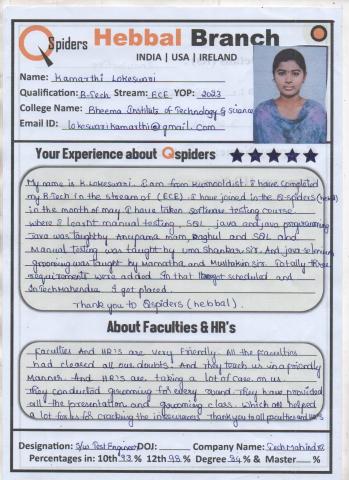 QSpiders Hebbal Branch
INDIA | USA | IRELAND
Name: Kamarthi Lokeswari
Qualification: B.Tech Stream: ECE YOP: 2023
College Name: Bheema Institute of Technology & science
Email ID: lokeswarikamarthi@gmail.com
Your Experience about Qspiders
My name is K. Lokeswari. I am from Kurnool dist. I have completed
my B.Tech in the stream of (ECE). I have joined in the Q-spiders (hebbal)
in the month of may. I have taken software testing course.
where I learnt manual testing, SQL java and java programming
Java was taught by Anupama mam, Raghul and SQL and
Manual testing was taught by Uma Shankar sir. And java selenium
grooming was taught by Mamatha and sir. Totally three
requirements were added. In that I got scheduled and
in TechMahendra I got placed.
Thank you to Qspiders (hebbal).
About Faculties & HR's
Faculties And HR'S are very Friendly. All the faculties
had cleared all our doubts. And they teach us in a friendly
Manner. And HR'S are taking a lot of care on us.
They conducted grooming for every round. They have provided
all the presentation and grooming class. Which all helped
a lot for us for cracking the interviews. Thank you to all faculties and HR'S
Designation: S/w Test Engineer DOJ: Company Name: Tech Mahindra
Percentages in: 10th 93 % 12th 98 % Degree 84 % & Master %